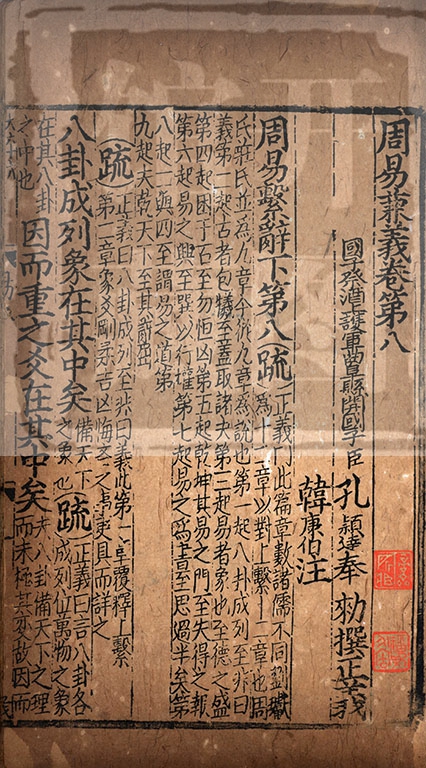 周易兼義卷第八
國子祭酒護軍曲阜縣開國子臣孔穎達奉 勑撰正義
韓康伯注
周易繫辭下第八(疏)正義曰此篇章數諸儒不同劉瓛為十二章以對上繫十二章也周
氏莊氏並為九章今從九章為說也第一起八卦成列至非曰
義第二起古者包犧至蓋取諸夬第三起易者象也至德之盛
第四起困于石至勿恒凶第五起乾坤其易之門至失得之報
第六起易之興至巽以行權第七起易之為書至思過半矣第
八起二與四至謂易之道第
九起夫乾天下至其辭屈
(疏)正義曰八卦成列至非曰義此第一章覆釋上繫
第二章象爻剛柔吉凶悔吝之事更具而詳之
八卦成列象在其中矣備天下之象也(疏)正義曰言八卦各成列位萬物之象
在其八卦之中也因而重之爻在其中矣夫八卦備天下之理而未極其變故因而